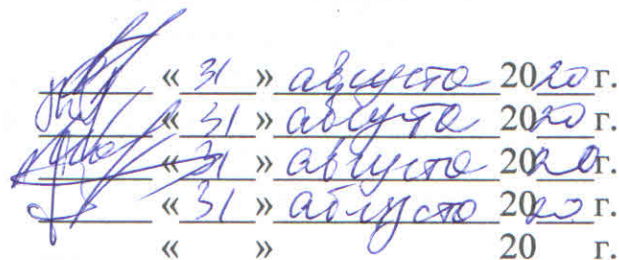 « 31 » августа 2020 г.
« 31 » августа 2020 г.
« 31 » августа 2020 г.
« 31 » августа 2020 г.
« » 20 г.